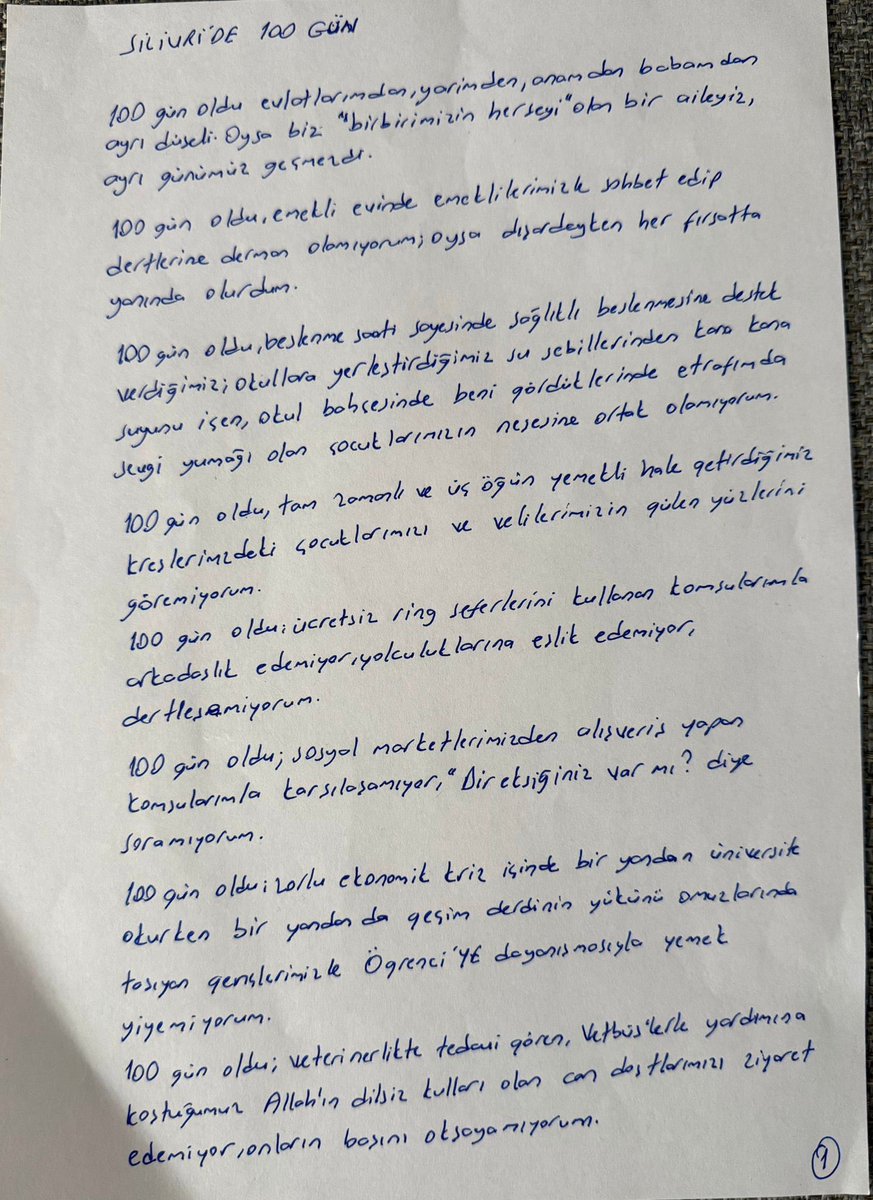 SİLİVRİ'DE 100 GÜN
100 gün oldu evlatlarımdan, yarimden, anamdan babamdan
ayrı düşeli. Oysa biz "birbirimizin herşeyi" olan bir aileyiz,
ayrı günümüz geçmezdi.
100 gün oldu, emekli evinde emeklilerimizle sohbet edip
dertlerine derman olamıyorum; oysa dışardayken her fırsatta
yanında olurdum.
100 gün oldu, beslenme saati sayesinde sağlıklı beslenmesine destek
verdiğimiz; okullara yerleştirdiğimiz su sebillerinden kana kana
suyunu içen, okul bahçesinde beni gördüklerinde etrafımda
sevgi yumağı olan çocuklarımızın neşesine ortak olamıyorum.
100 gün oldu, tam zamanlı ve üç öğün yemekli hale getirdiğimiz
kreşlerimizdeki çocuklarımızı ve velilerimizin gülen yüzlerini
göremiyorum.
100 gün oldu; ücretsiz ring seferlerini kullanan komşularımla
arkadaşlık edemiyor, yolculuklarına eşlik edemiyor,
dertleşemiyorum.
100 gün oldu; sosyal marketlerimizden alışveriş yapan
komşularımla karşılaşamıyor, "Bir eksiğiniz var mı? diye
soramıyorum.
100 gün oldu; zorlu ekonomik kriz içinde bir yandan üniversite
okurken bir yandan da geçim derdinin yükünü omuzlarında
taşıyan gençlerimizle Öğrenci'YE dayanışmasıyla yemek
yiyemiyorum.
100 gün oldu; veterinerlikte tedavi gören, Vetbüs'lerle yardımına
koştuğumuz Allah'ın dilsiz kulları olan can dostlarımızı ziyaret
edemiyor, onların başını okşayamıyorum.
1